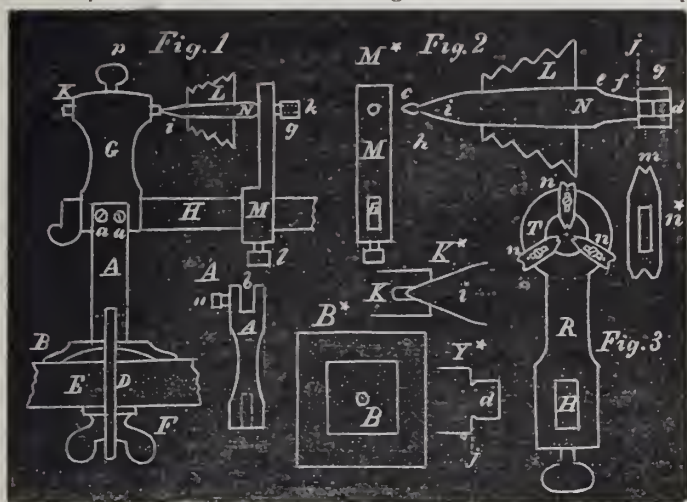 Fig. 1
p
K
G
i
L
N
k
g
a a
H
M
l
A
B
E
D
F
A
b
A
"
M*
Fig. 2
M
H
c
h
i
L
N
e
f
j
g
d
K*
K
i
B*
B
Y*
d
j
n
T
n
n
m
n*
R
Fig. 3
H